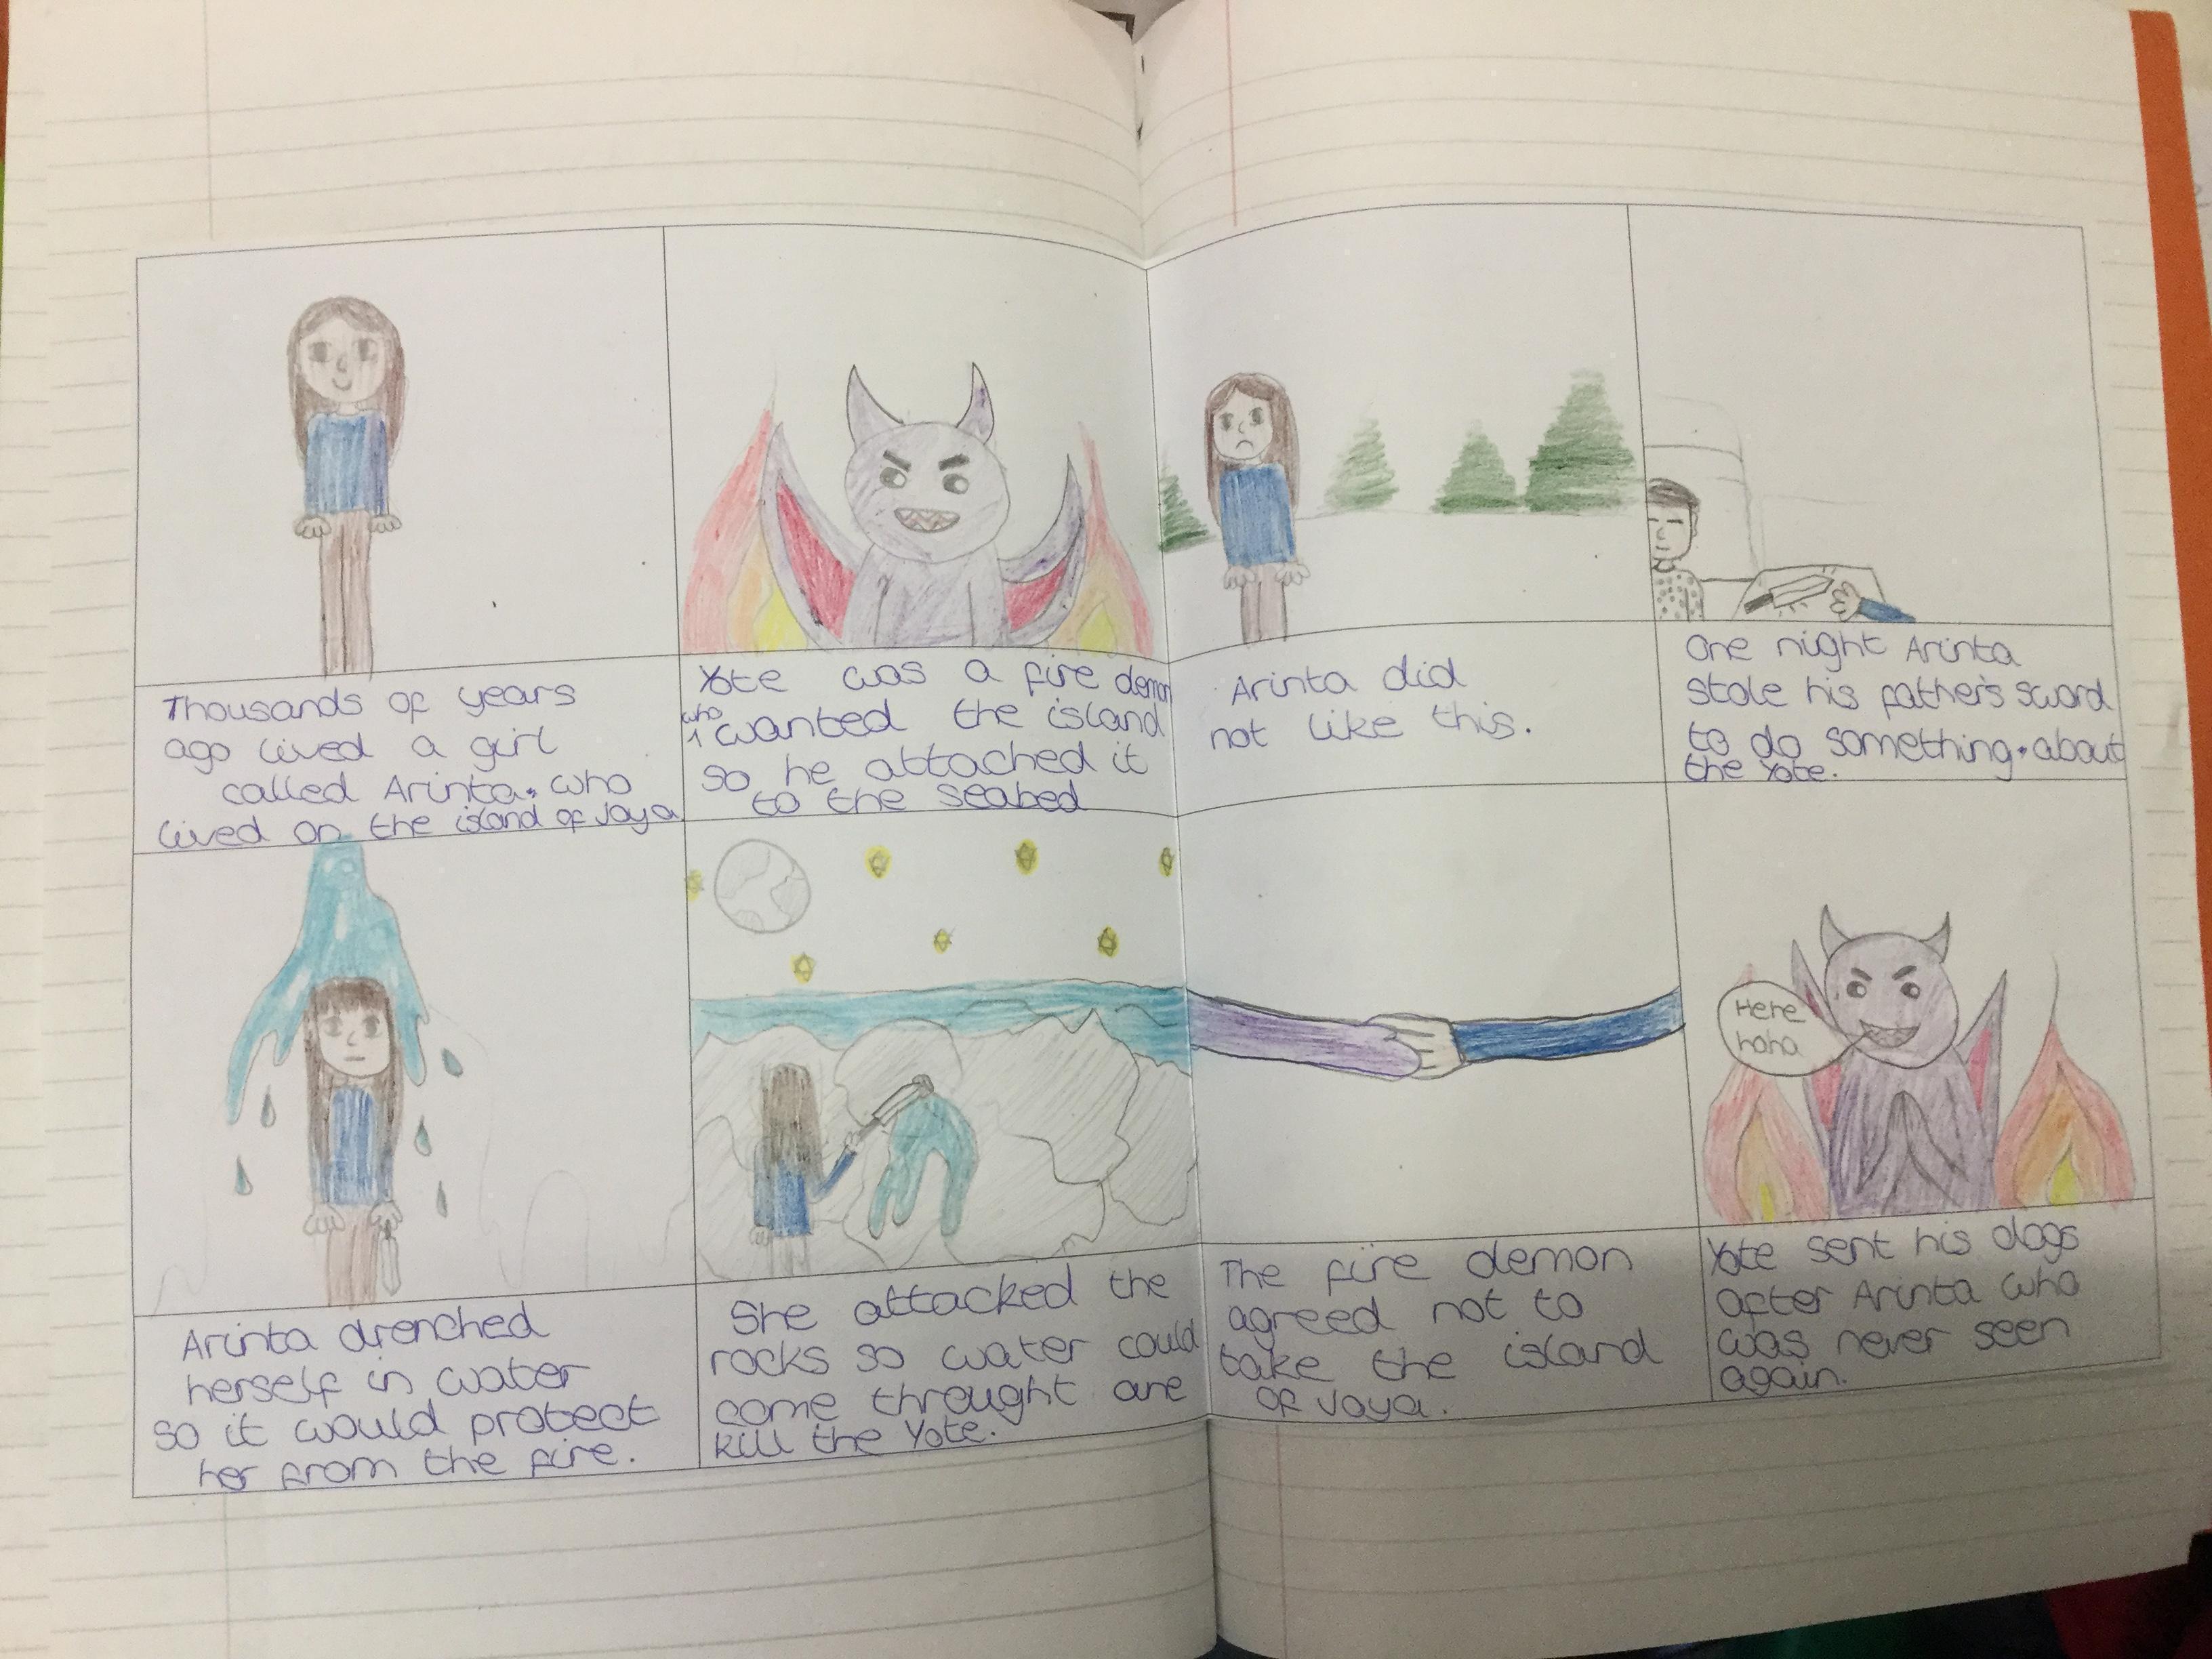 Thousands of years
ago lived a girl
called Arinta. who
lived on the island of Joya
Yote was a fire demon
who
wanted the island
so he attached it
to the seabed
Arinta did
not like this.
One night Arinta
stole his father's sword
to do something about
the Yote.
Arinta drenched
herself in water
so it would protect
her from the fire.
She attacked the
rocks so water could
come throught are
kill the Yote.
The fire demon
agreed not to
take the island
of Joya.
Hehe
haha
Yote sent his dogs
after Arinta who
was never seen
again.